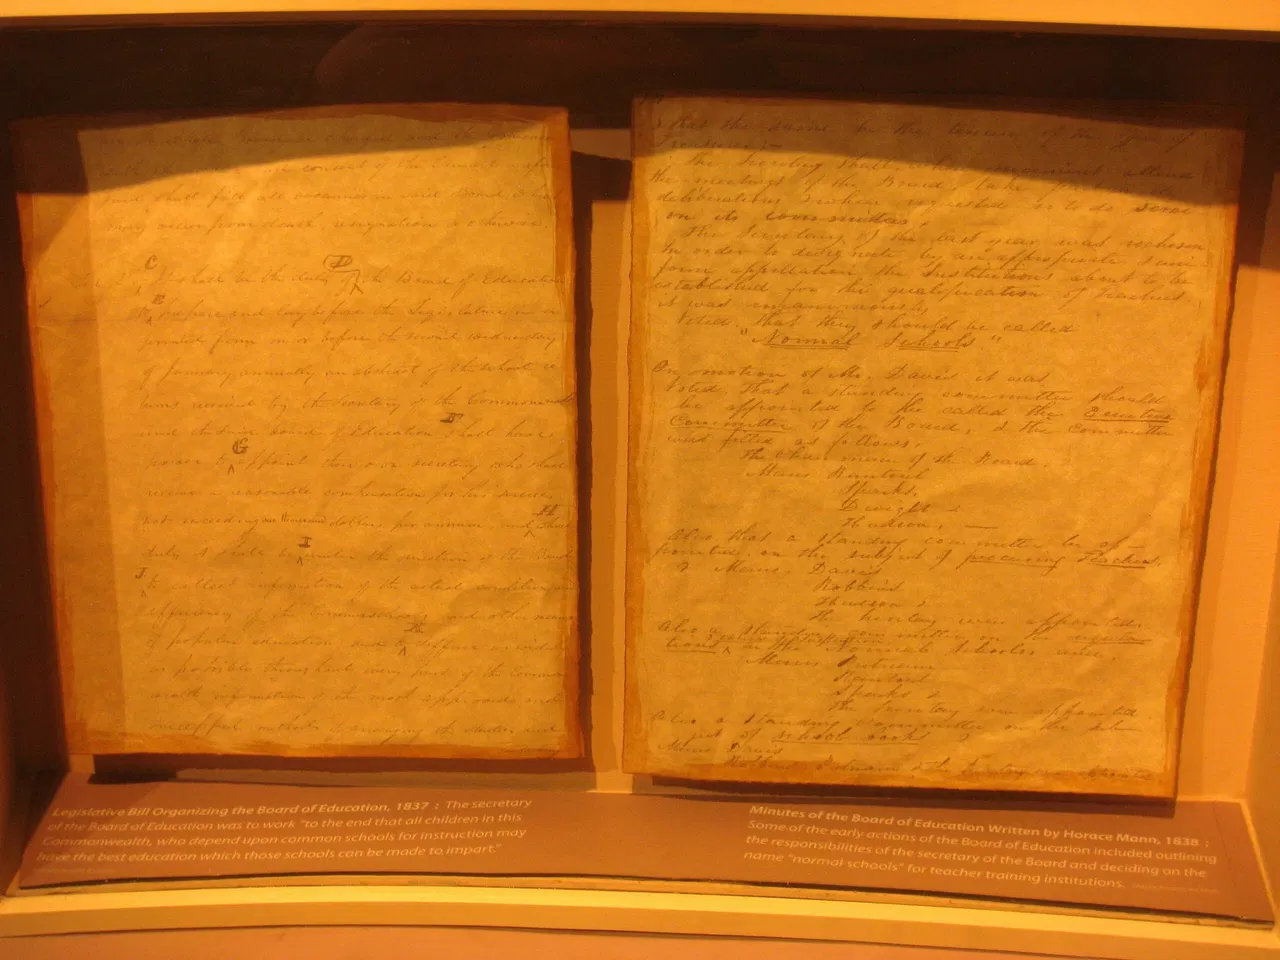 with consent of the
shall fill all
death resignation or otherwise.
C
D
the Board of Education
E
prepare and lay before the Legislature in a
printed form on or before the second wednesday
of January, annually, an abstract of the school re
turns received by the Secretary of the Commonwealth
F
Board of Education shall have
G
power to appoint their own secretary who shall
receive a reasonable compensation for his services
not exceeding one thousand dollars per annum, and
H
I
duty it shall be under the direction of the Board
J
to collect information of the actual condition
efficiency of the common schools and other means
K
of popular education and to diffuse as widely
as possible throughout every part of the Common
wealth information of the most approved and
successful methods of arranging the studies and
that the same be the
The Secretary shall, when convenient attend
the meetings of the Board, take part in its
deliberations, & when requested so to do serve
on its committees.
The Secretary of the last year was rechosen
In order to designate by an appropriate & uni-
form appellation the Institutions about to be
established for the qualification of Teachers,
it was unanimously
Voted, that they should be called
"Normal Schools"
On motion of Mr. Davis it was
Voted, That a standing committee should
be appointed to be called the Executive
Committee of the Board, & the committee
was filled as follows.
The Chairman of the Board.
Messrs Rantoul
Sparks,
Dwight &
Hudson,
Also that a standing committee be ap-
pointed, on the subject of procuring Teachers,
& Messrs. Davis
Robbins
Hudson &
the Secretary were appointed.
Also a standing committee on the regula
tions in the Normal Schools and,
Messrs Putnam
Rantoul
Sparks &
the Secretary were appointed.
Also a standing committee on the sub-
ject of school books &
Messrs Davis
Robbins Putnam & the Secretary were appointed
Legislative Bill Organizing the Board of Education, 1837 : The secretary
of the Board of Education was to work "to the end that all children in this
Commonwealth, who depend upon common schools for instruction may
have the best education which those schools can be made to impart."
Minutes of the Board of Education Written by Horace Mann, 1838 :
Some of the early actions of the Board of Education included outlining
the responsibilities of the secretary of the Board and deciding on the
name "normal schools" for teacher training institutions.